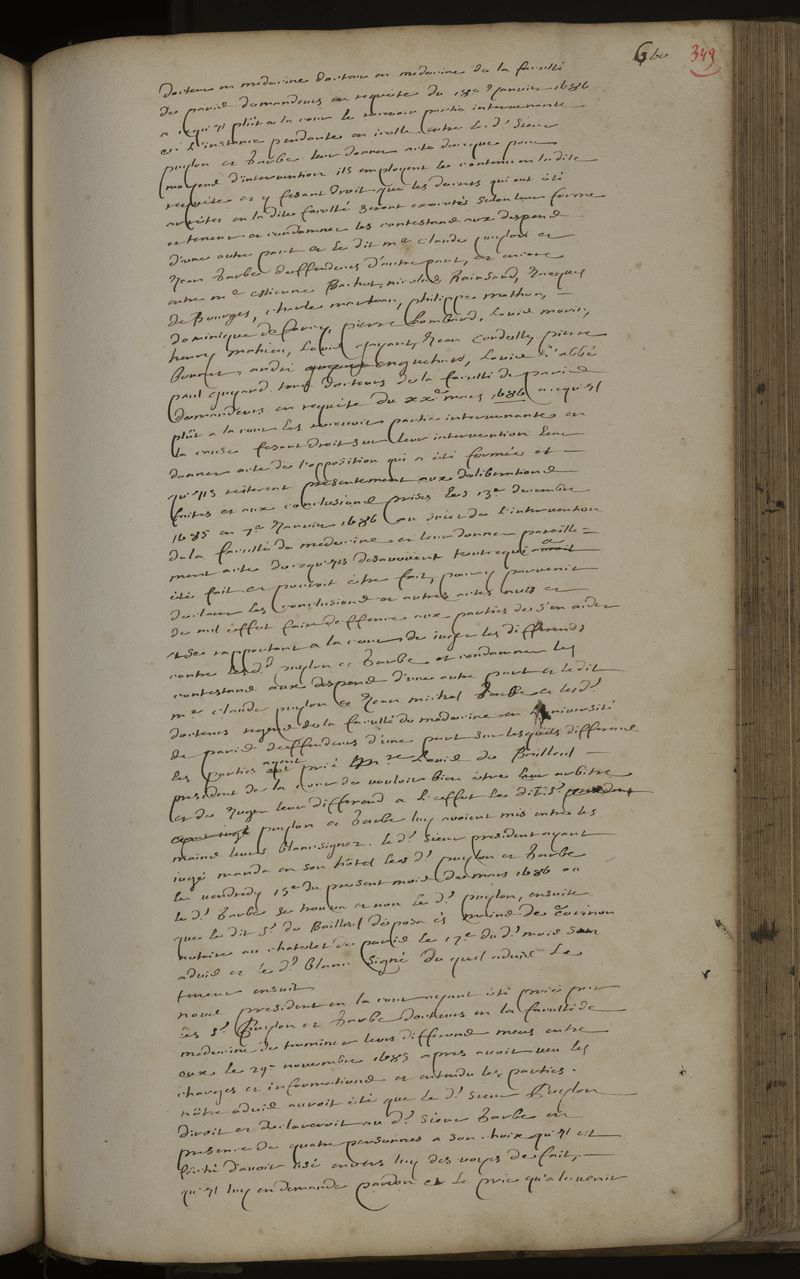 660 349
docteur en medecine docteur en medecine de la faculté
de paris demandeurs en requeste du 18e Janvier 1686
a ce qu'il plût a la cour le recevoir partie intervenante
en l'instance pendante en icelle entre led. Sieur
puylon et Barbe leur donner acte de ce que pour
moyens d'intervention ils employent le contenu en ladite
requeste et y fesant droit que les decrets qui ont été
arrétés en ladite faculté seront executés selon leur forme
et teneur et condamner les contestans aux depens
d'une autre part et le dit me Claude puylon et
Jean Barbe deffendeurs d'autre part, et encore
entre me Estienne Bachot, nicolas Rainssand, Jacques
de Bourges, charle marteau, philippe mathon,
dominique de farcy, pierre Lombard, Louis morin,
henry mahieu, Louis gayant, Jean Cordelle, pierre
Bonnet, andré enguehard, Louis l'abbé
paul guyard tous docteurs de la faculté de paris
demandeurs en requeste du xxie mars 1686 a ce qu'il
plût a la cour les recevoir partie intervenantes en
la cause fesant droit sur leur intervention leur
donner acte de l'opposition qui a été formée et
qu'ils reiterent presentement aux deliberations
faites et aux conclusions prises les 13e decembre
1685 et 7e Janvier 1686 au sujet de l'intervention
de la faculté de medecine et leur donner pareille=
ment acte de ce qu'ils desavoüent tout ce qui a
été fait et pouroit être fait, pour y parvenir
declarer les conclusions et autres actes nuls et
de nul effet faire deffence aux parties de s'en aider
rapportant a la cour de juger les differends
contre lesd. puylon et Barbe et condamner les
contestans aux depens d'une autre part et ledit
me Claude puylon et Jean michel Barbe et lesd.
docteurs regens de la faculté de medecine en l'université
de paris deffendeurs d'une part sur lesquels differens
les parties ayant prié Mre Louis de Bailleul
president de la cour de vouloir bien être leur arbitre
et de Juger leur differend a l'effet les dits Srs
puylon et Barbe luy avoient mis entre les
mains leurs blancsignez. le d. Sieur president ayant
jugé manda en son hôtel lesd. puylon et Barbe
le vendredy 15e du present mois de mars 1686 ou
le d. Barbe se trouva et non le d. puylon, ensuite
que le dit Sr de Bailleul deposa és mains de
notaire au chatelet de paris le 17e du d. mois son
advis et le d. blanc signé du quel advis le
teneur ensuit
nous president en la cour ayant été priés par
les Srs Puylon et Barbe docteurs en la faculté de
medecine de terminer leurs differend meus entre
eux le 29e novembre 1685 apres avoir veu les
charges et informations et entendu les parties.
nôtre advis auroit été que le d. Sieur Puylon
diroit et declareroit au d. Sieur Barbe en
presence de quatre personnes a son choix qu'il est
fâché d'avoir usé envers luy des voyes de fait,
qu'il luy en demande pardon et le prie qu'a l'avenir